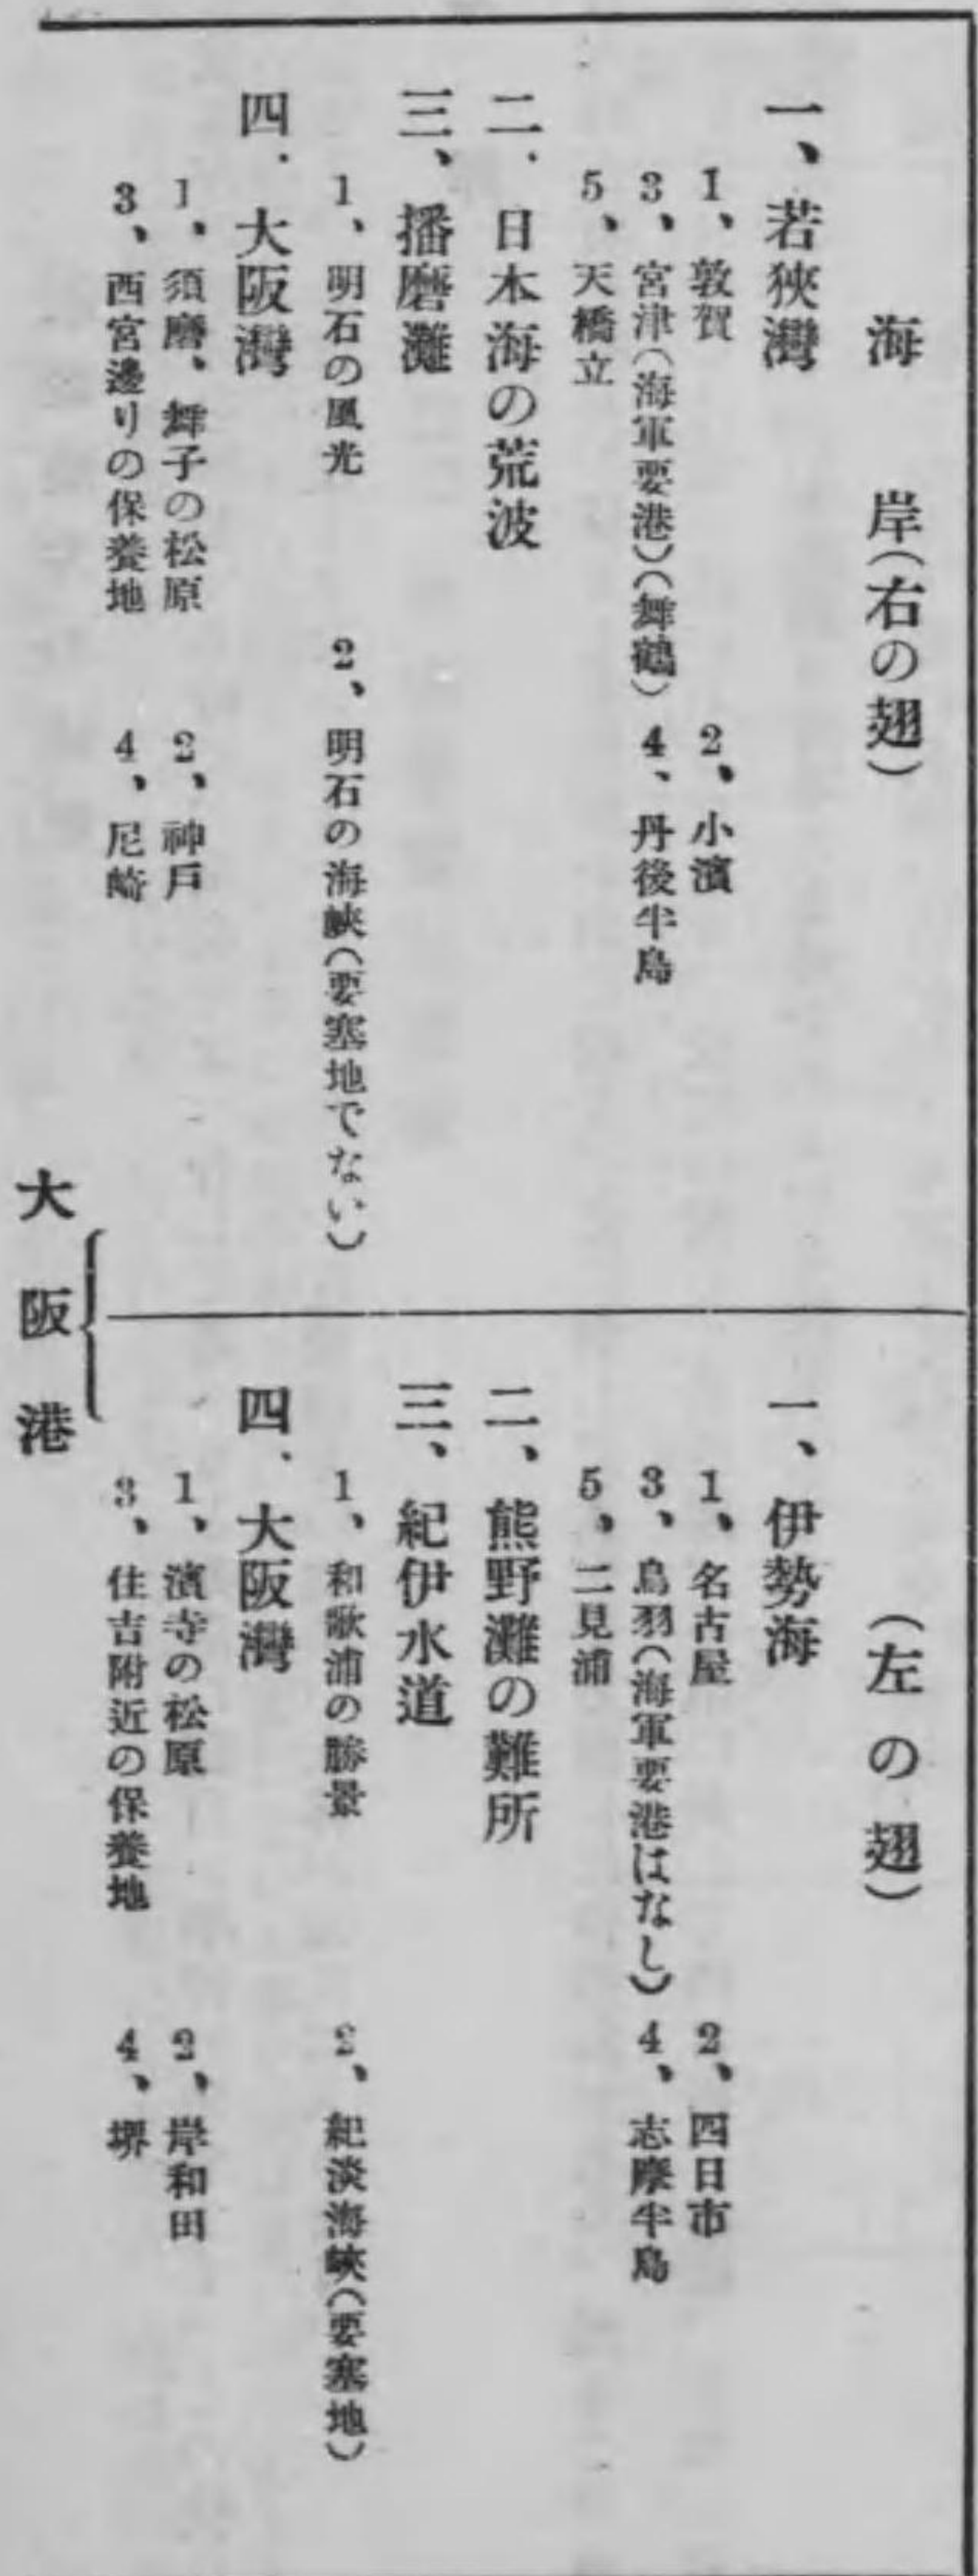 海岸(右の翅)
一、若狹灣
1、敦賀 2、小濱
3、宮津(海軍要港)(舞鶴) 4、丹後半島
5、天橋立
二.日本海の荒波
三、播磨灘
1、明石の風光 2、明石の海峽(要塞地でない)
四.大阪灣
1、須磨、舞子の松原 2、神戸
3、西宮邊りの保養地 4、尼崎
(左の翅)
一、伊勢海
1、名古屋 2、四日市
3、鳥羽(海軍要港はなし) 4、志摩半島
5、二見浦
二、熊野灘の難所
三、紀伊水道
1、和歌浦の勝景 2、紀淡海峽(要塞地)
四.大阪灣
1、濱寺の松原 2、岸和田
3、住吉附近の保養地 4、堺
大阪港